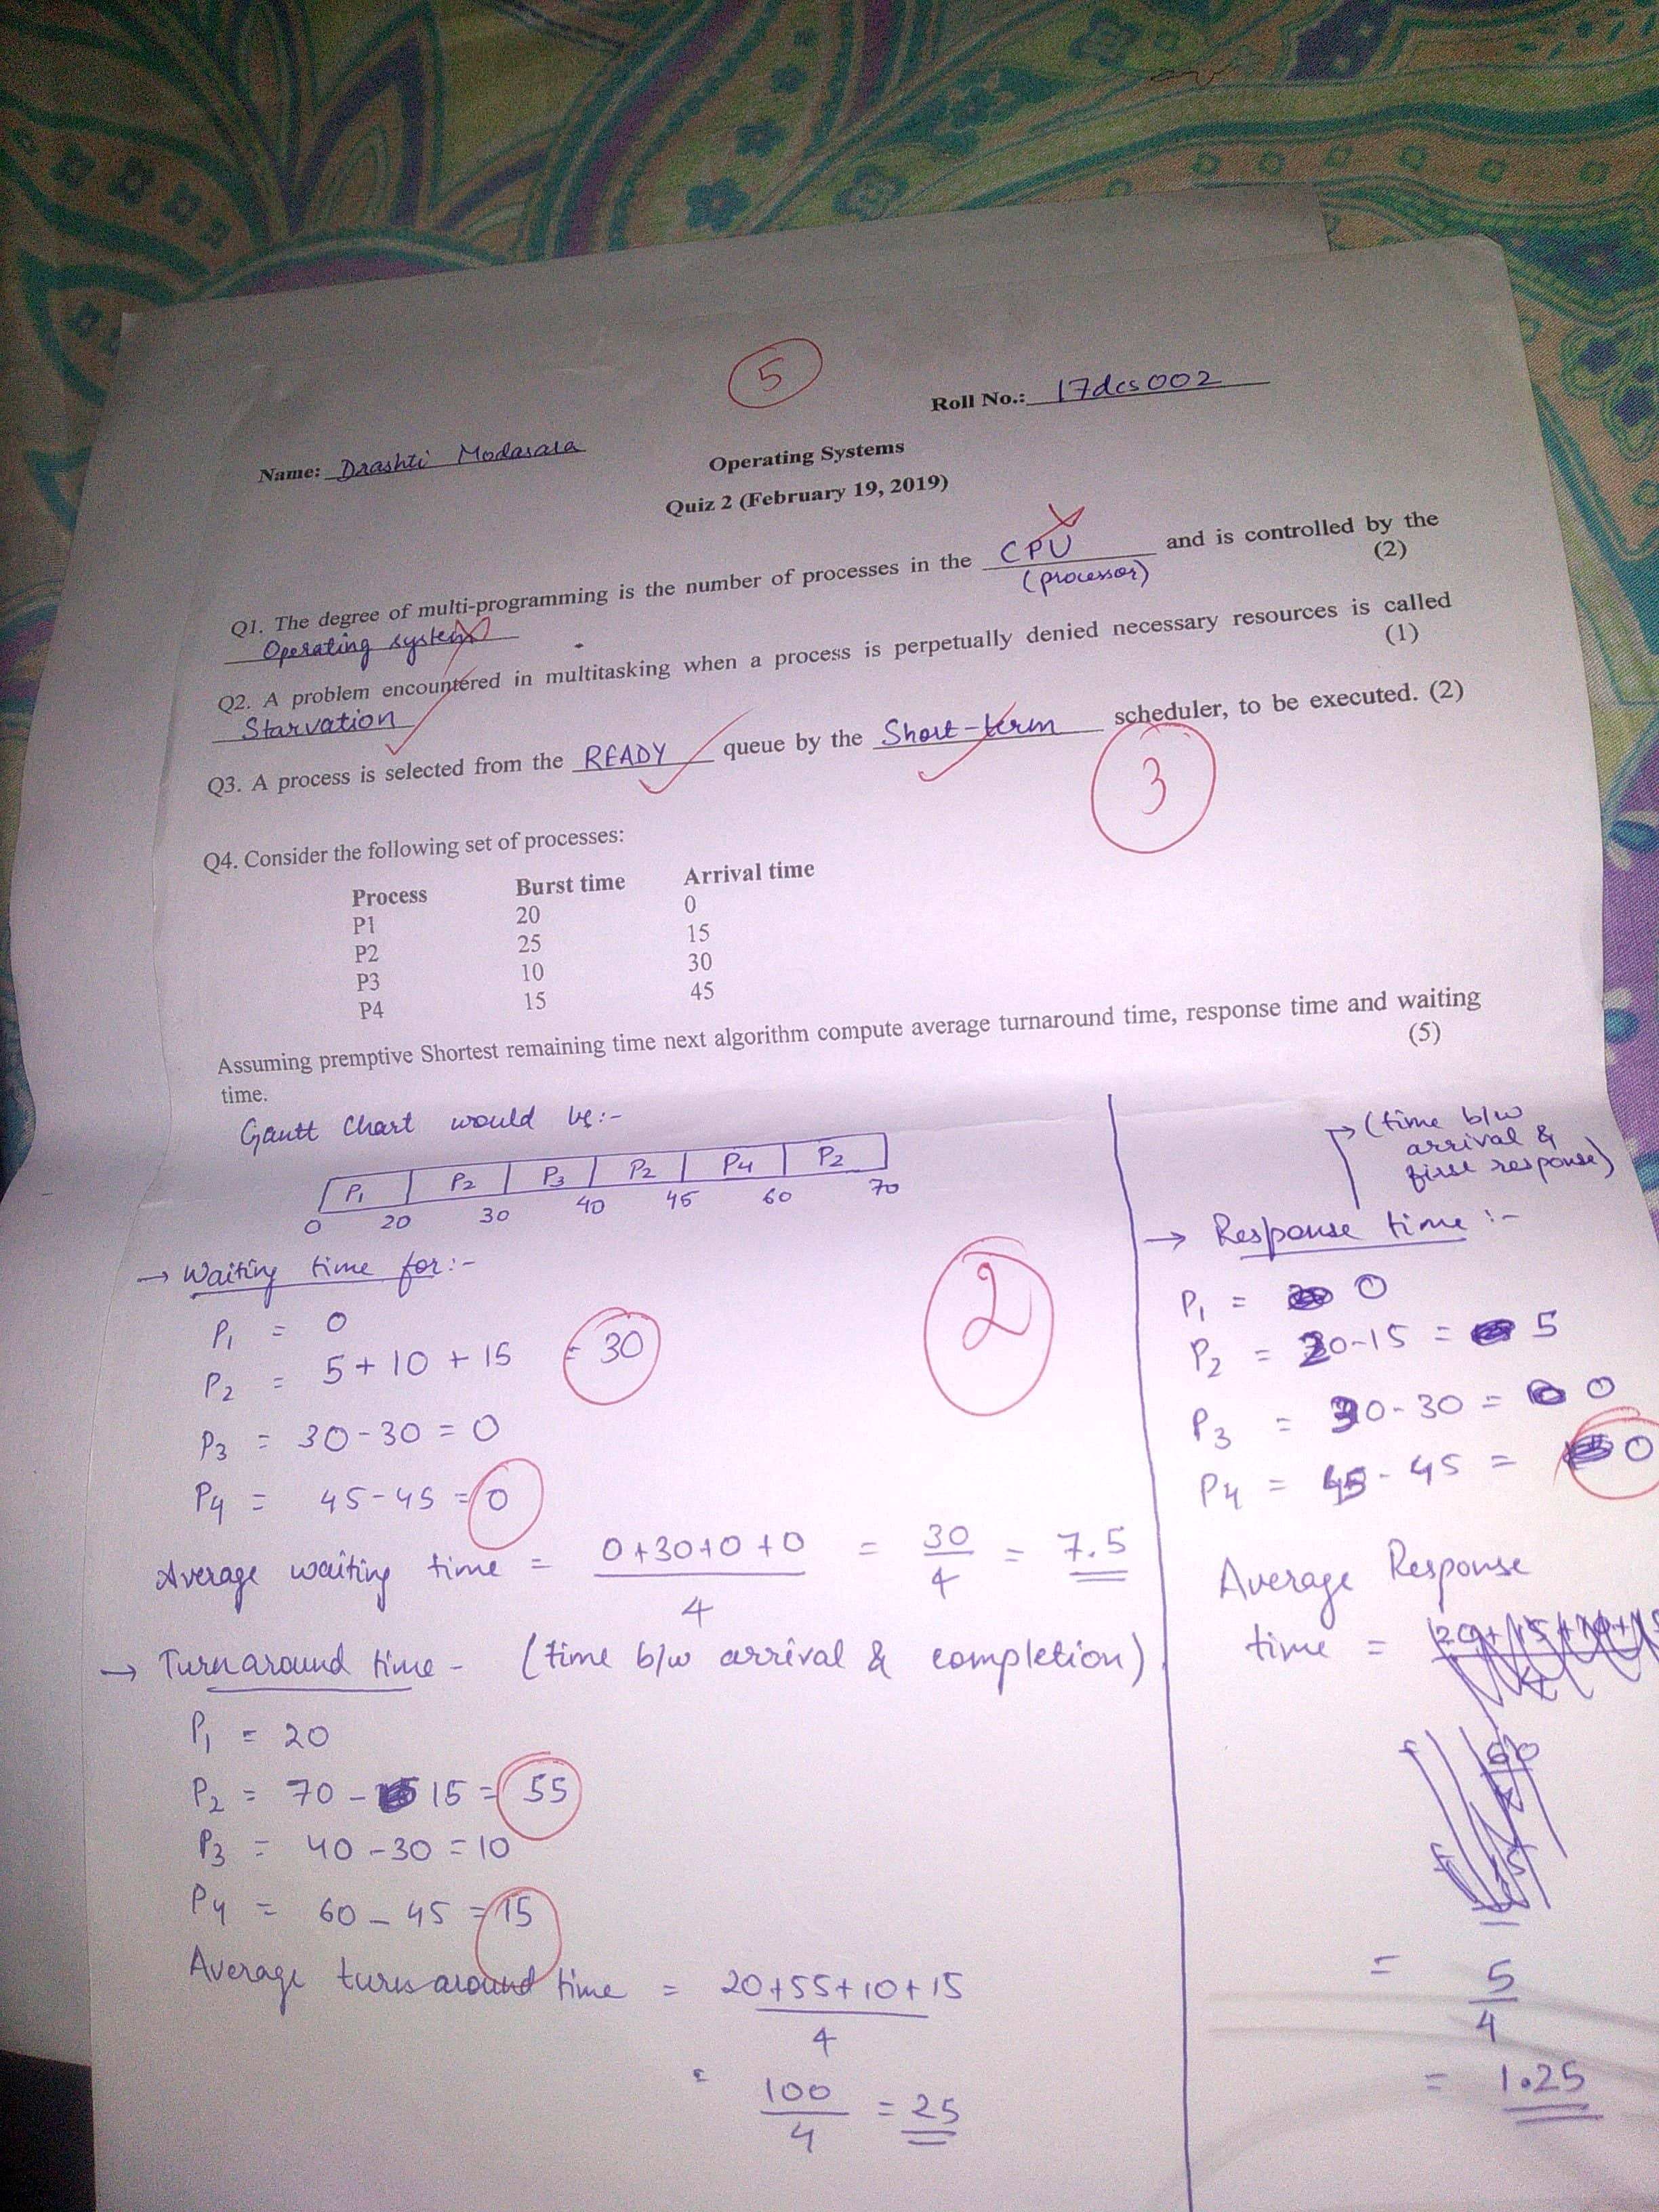 5
Name: Drashti Modasara
Roll No.: 17dcs002
Operating Systems
Quiz 2 (February 19, 2019)
Q1. The degree of multi-programming is the number of processes in the CPU (processor) and is controlled by the
Operating system (2)
Q2. A problem encountered in multitasking when a process is perpetually denied necessary resources is called
Starvation (1)
Q3. A process is selected from the READY queue by the Short-term scheduler, to be executed. (2)
3
Q4. Consider the following set of processes:
Process Burst time Arrival time
P1 20 0
P2 25 15
P3 10 30
P4 15 45
Assuming premptive Shortest remaining time next algorithm compute average turnaround time, response time and waiting
time. (5)
Gantt Chart would be:-
P1 P2 P3 P2 P4 P2
0 20 30 40 45 60 70
→ Waiting time for:-
P1 = 0
P2 = 5+10+15 = 30
P3 = 30-30 = 0
P4 = 45-45 = 0
2
Average waiting time = 0+30+0+0 / 4 = 30 / 4 = 7.5
→ Turnaround time - (time b/w arrival & completion)
P1 = 20
P2 = 70 - 15 = 55
P3 = 40-30 = 10
P4 = 60-45 = 15
Average turnaround time = 20+55+10+15 / 4
= 100 / 4 = 25
→ (time b/w
arrival &
first response)
→ Response time :-
P1 = 0
P2 = 20-15 = 5
P3 = 30-30 = 0
P4 = 45-45 = 0
Average Response
time =
= 5 / 4
= 1.25